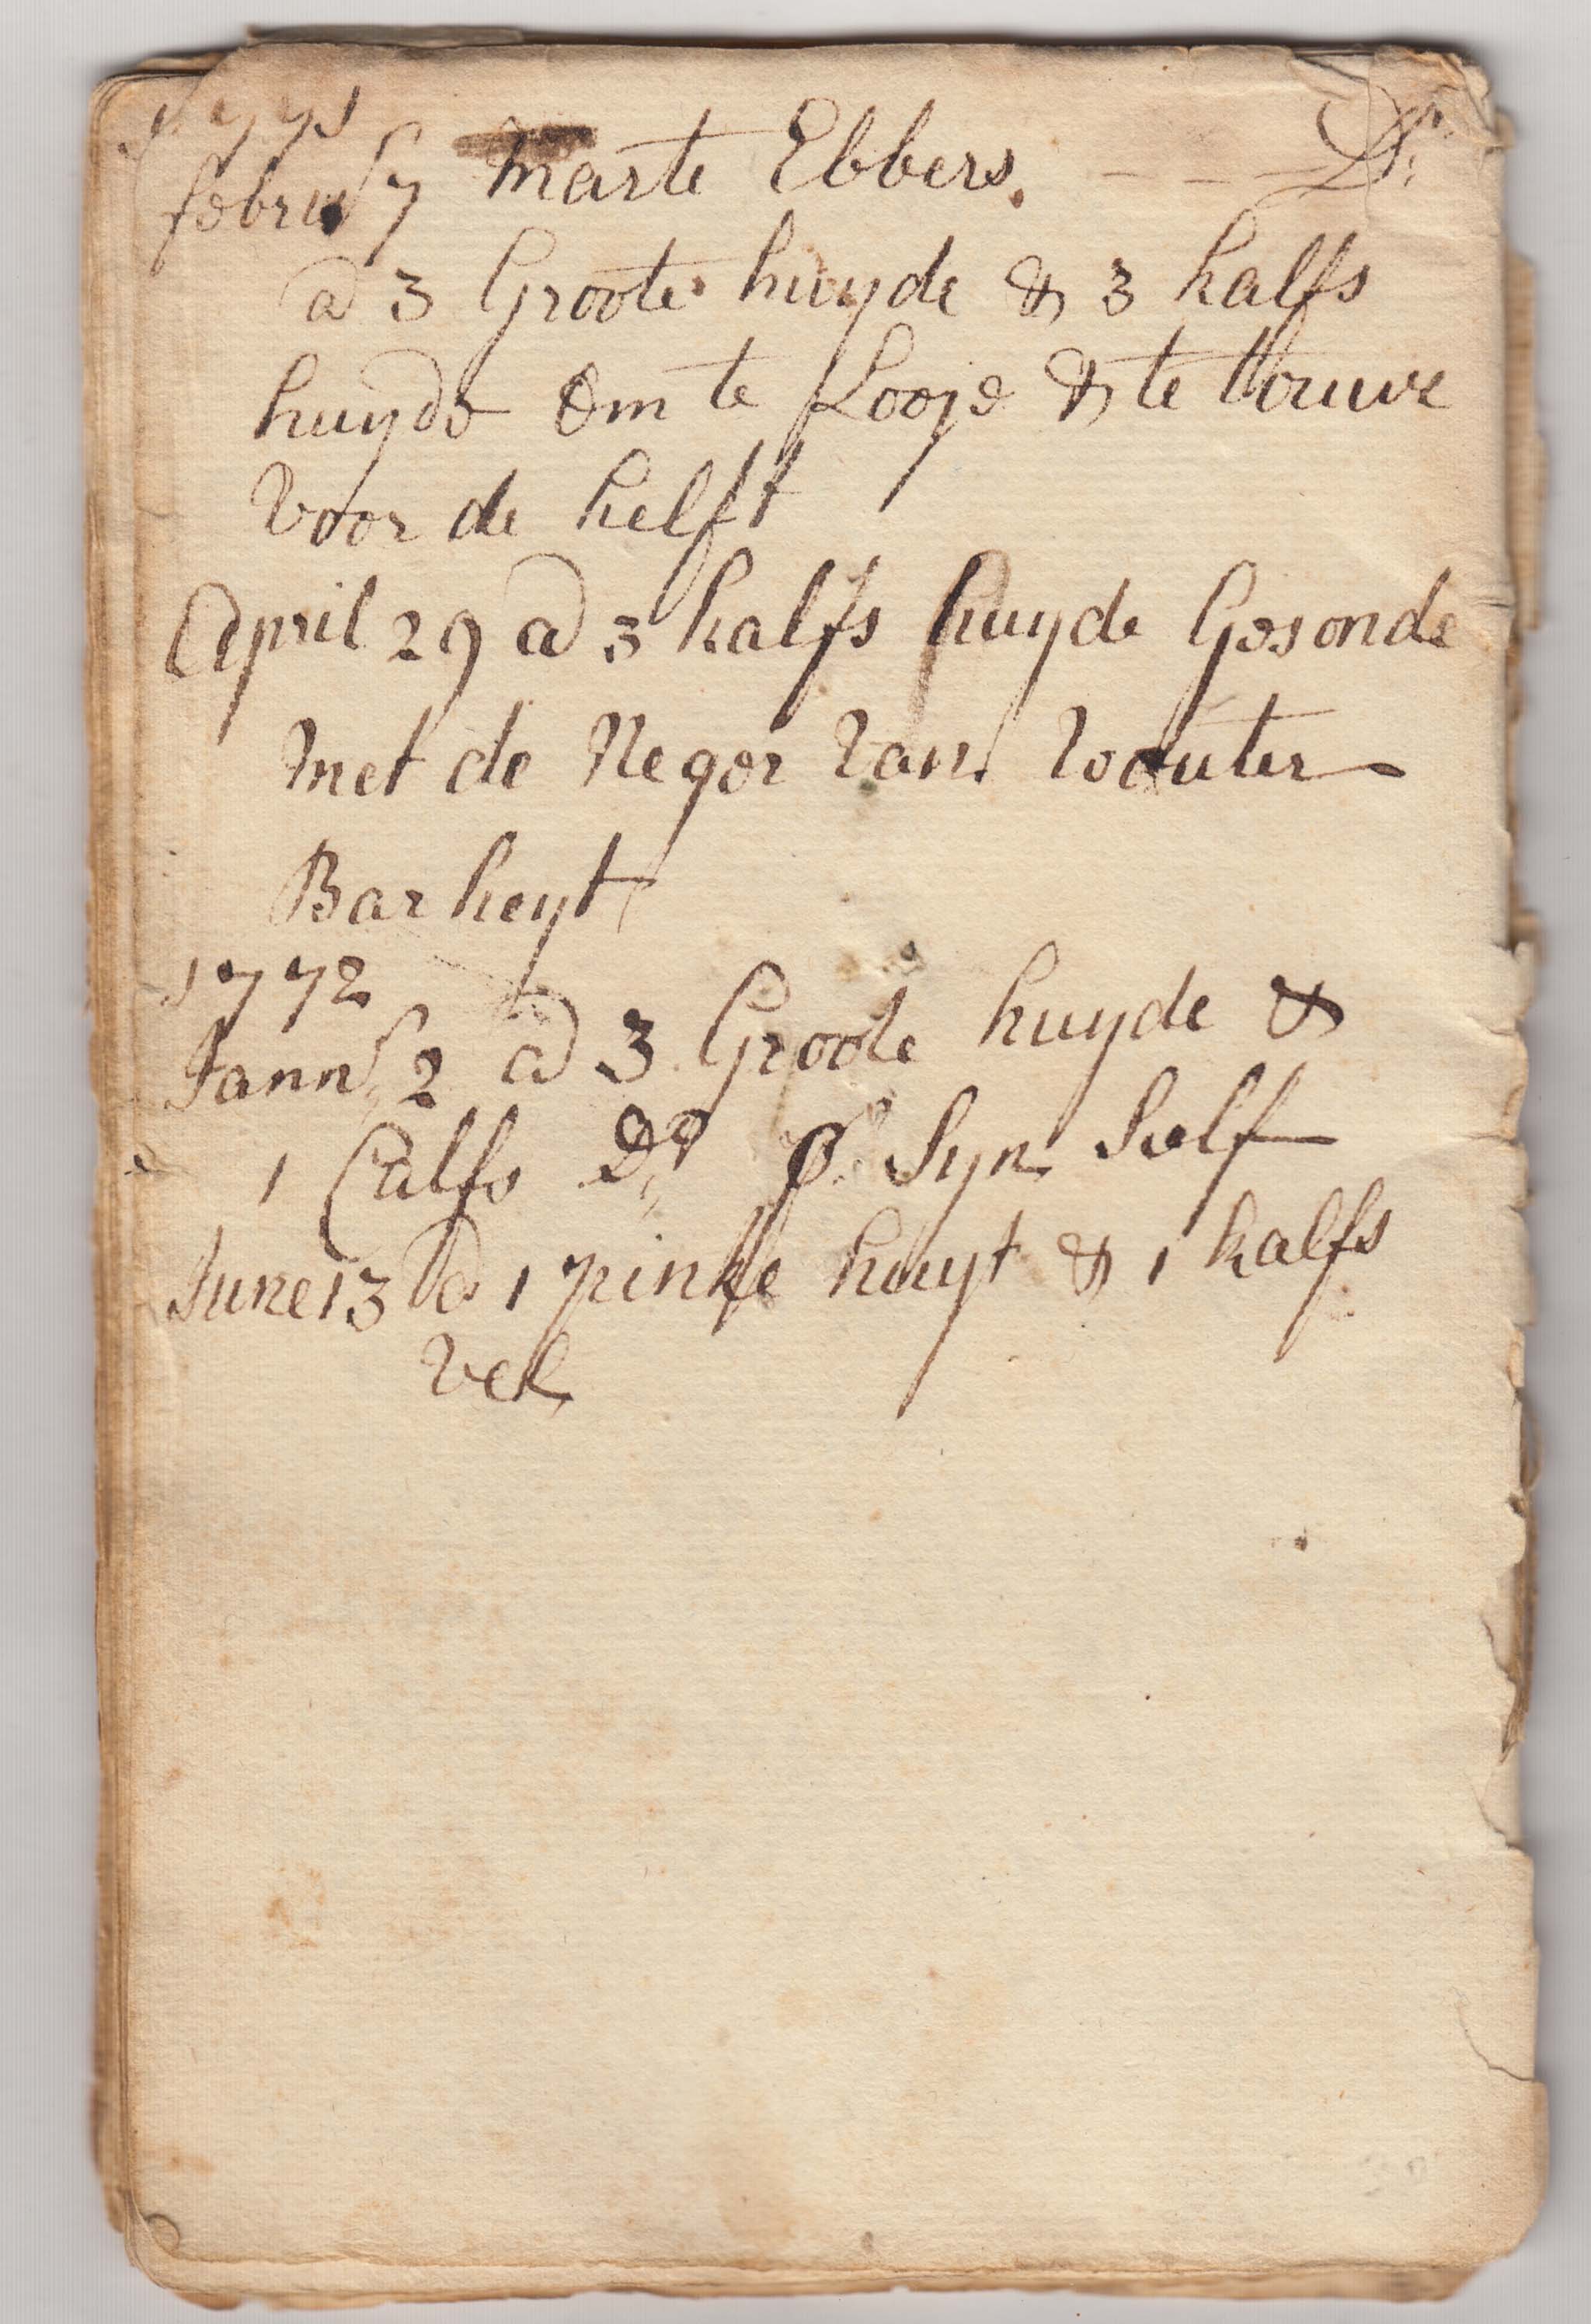 1771
februʸ 7 Marte Ebbers. - - - Dr.
a 3 Groote huyde & 3 kalfs
huyde Om te Looje & te touwe
voor de helft
April 29 a 3 kalfs huyde Gesonde
met de Neger van Wouter
Barheyt
1772
Jannʸ 2 a 3 Groote huyde &
1 Calfs Do pr Syn Self
June 13 a 1 pinke huyt & 1 kalfs
vel